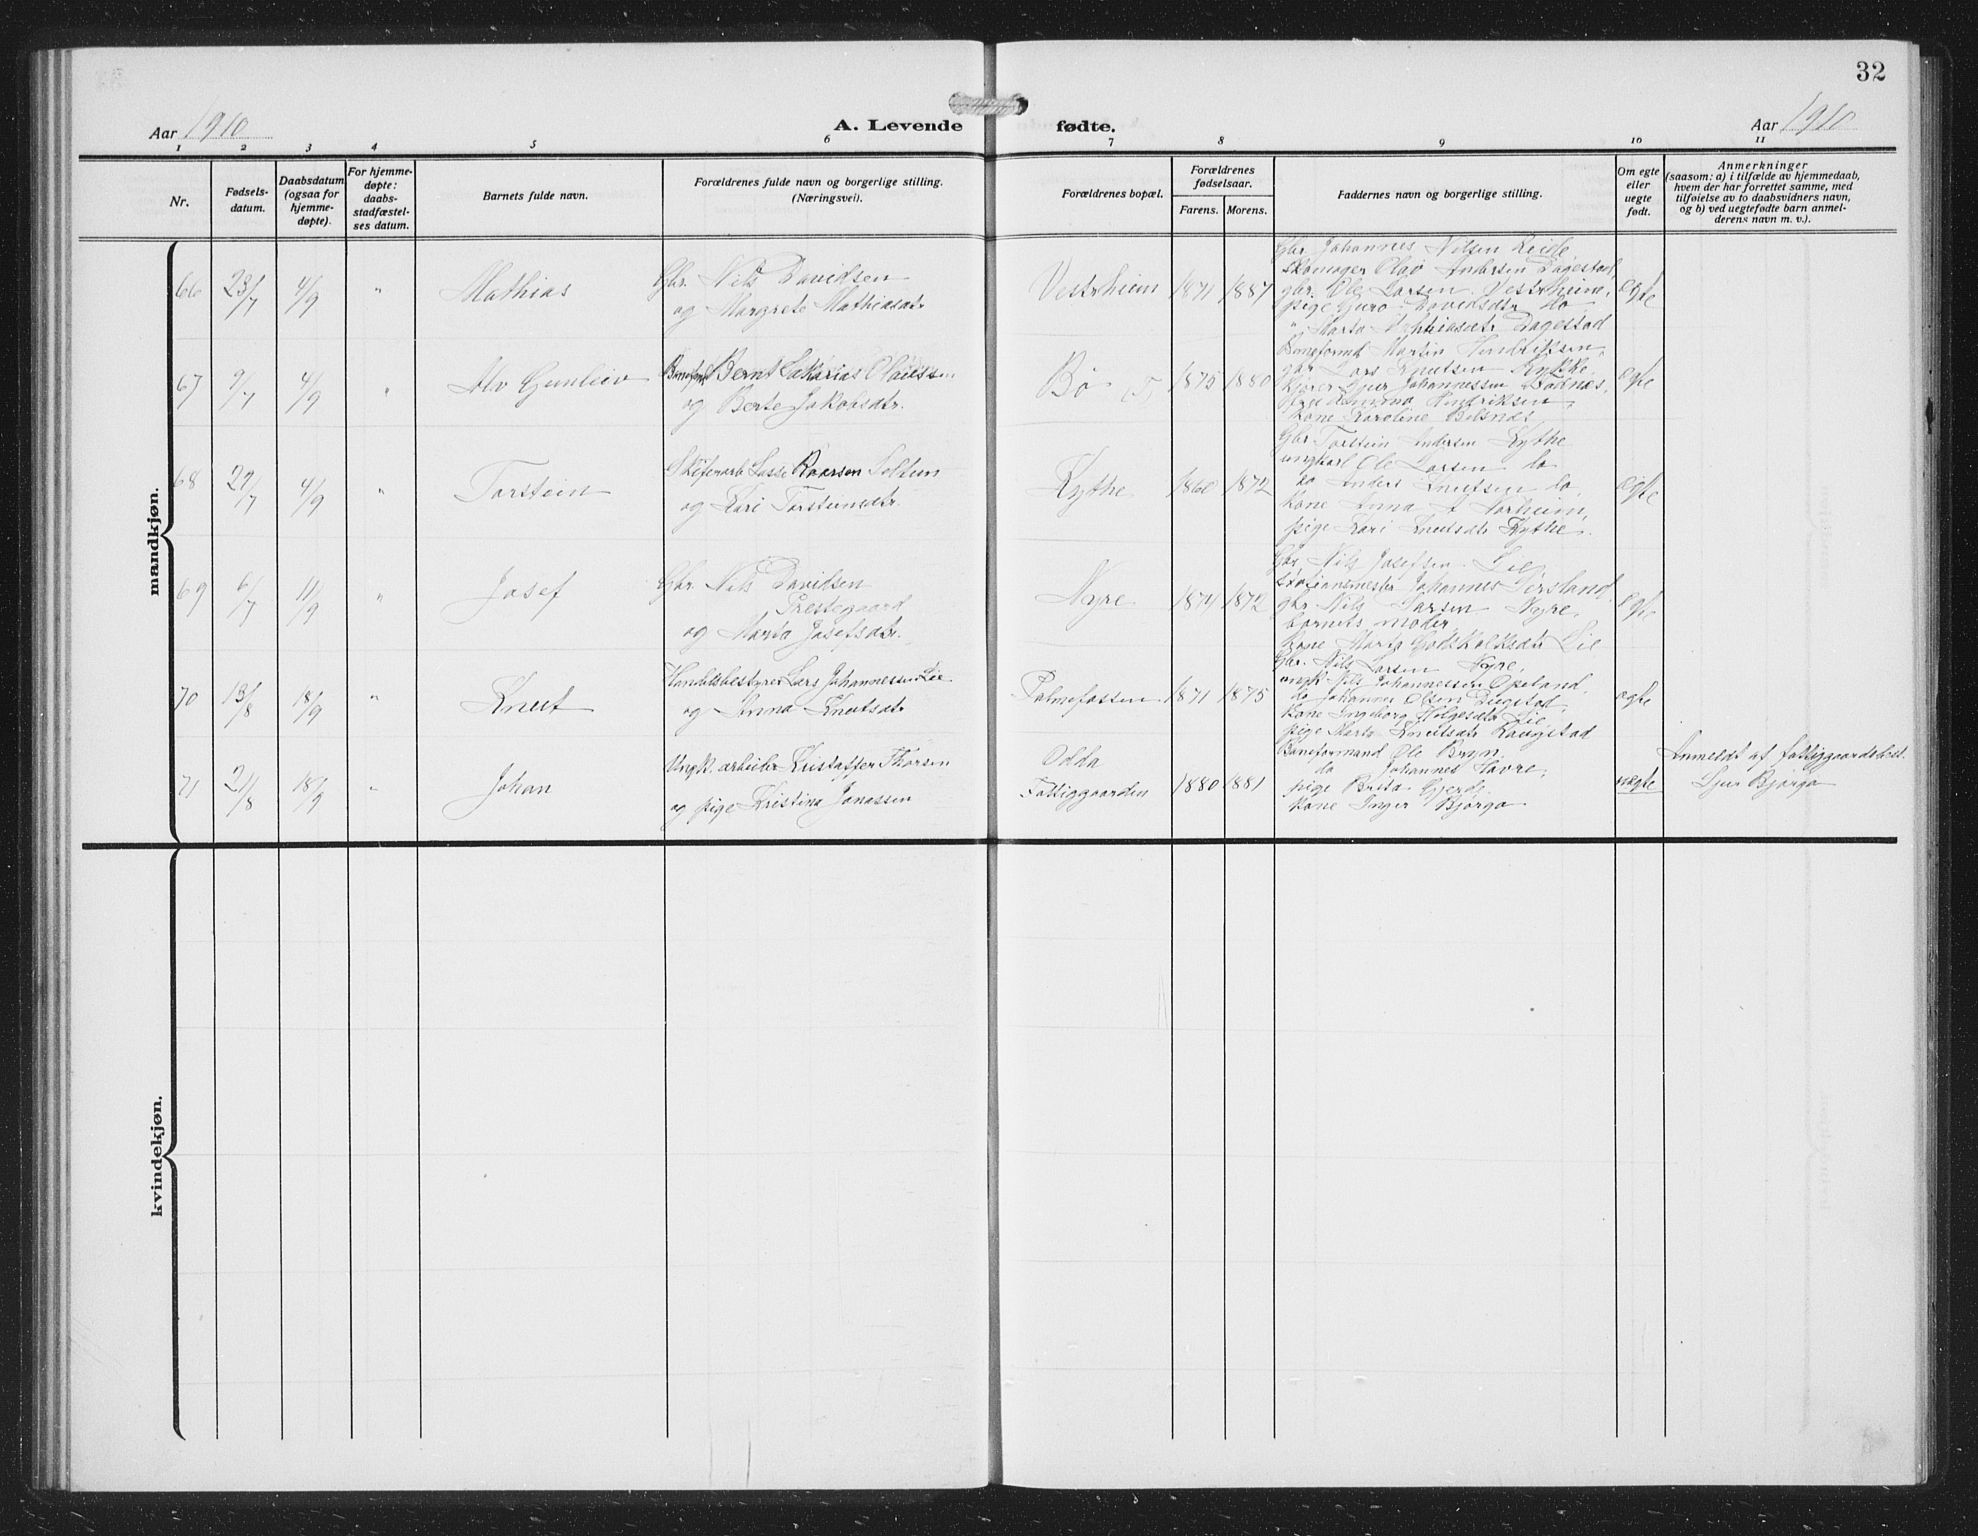 32
Aar 1910
A. Levende fødte.
Aar 1910
1 2 3 4 5 6 7 8 9 10 11
Nr.
Fødsels-
datum.
Daabsdatum
(ogsaa for
hjemme-
døpte).
For hjemme-
døpte:
daabs-
stadfæstel-
ses datum.
Barnets fulde navn.
Forældrenes fulde navn og borgerlige stilling.
(Næringsvei).
Forældrenes bopæl.
Forældrenes
fødselsaar.
Farens. Morens.
Faddernes navn og borgerlige stilling.
Om egte
eller
uegte
født.
Anmerkninger
(saasom: a) i tilfælde av hjemmedaab,
hvem der har forrettet samme, med
tilføielse av to daabsvidners navn,
og b) ved uegtefødte barn anmel-
derens navn m. v.).
mandkjøn.
66 23/7 4/9 "
Mathias
Gbr. Nils Davidsen
og Margrete Mathiasdtr
Vestrheim
1871 1887
Gbr. Johannes Nilsen Reide
Skomager Olav Andersen Dagestad,
gbr. Ole Larsen Vestrheim,
pige Guro Davidsdtr do
" Marta Mathiasdtr Dagestad
egte
67 9/7 4/9 "
Alv Gunleiv
Banefmd Bernt Sakarias Olaissen
og Berte Jakobsdtr.
Bø
1875 1880
Baneformd Martin Hendriksen,
gbr Lars Knutsen
Sjur Johannessen
Emma Hendriksen,
Kone Karoline
egte
68 29/7 4/9 "
Torstein
Skiferarb Lasse Roarsen
og Kari Torsteinsdtr.
Kythe
1860 1872
Gbr Torstein Andersen Kythe
ungkarl Ole Larsen do
do Anders Knutsen do,
Kone Anna A Norheim,
pige Kari Knutsdtr Kythe.
egte
69 6/7 11/9 "
Josef
Gbr. Nils Davidsen
Prestegaard
og Marta Josefsdtr.
Nyre
1874 1872
Gbr. Nils Josefsen Lie
Stationsmester Johannes
gbr Nils Larsen Nyre,
barnets moder,
Kone Marta Godskalksdtr Lie
egte
70 13/8 18/9 "
Knut
Handelsbestyrer Lars Johannessen Lie
og Anna Knutsdtr
Palmefossen
1871 1875
Gbr. Nils Larsen Nyre,
ungk. Nils Johannessen Opeland,
do Johannes Olsen Dugstad,
Kone Ingeborg Helgesdtr Lie,
pige Marta Knutsdtr
egte
71 21/8 18/9 "
Johan
Ungk. arbeider Kristaffer Thorsen
og pige Kristina Jonassen
Odda
Fattiggaarden
1880 1881
Baneformand Ole Bryn,
do Johannes Havre,
pige Brita Gjerde
Kone Inger Bjørgo
uegte
Anmeldt af fattiggaardsbest.
Sjur Bjørgo
kvindekjøn.